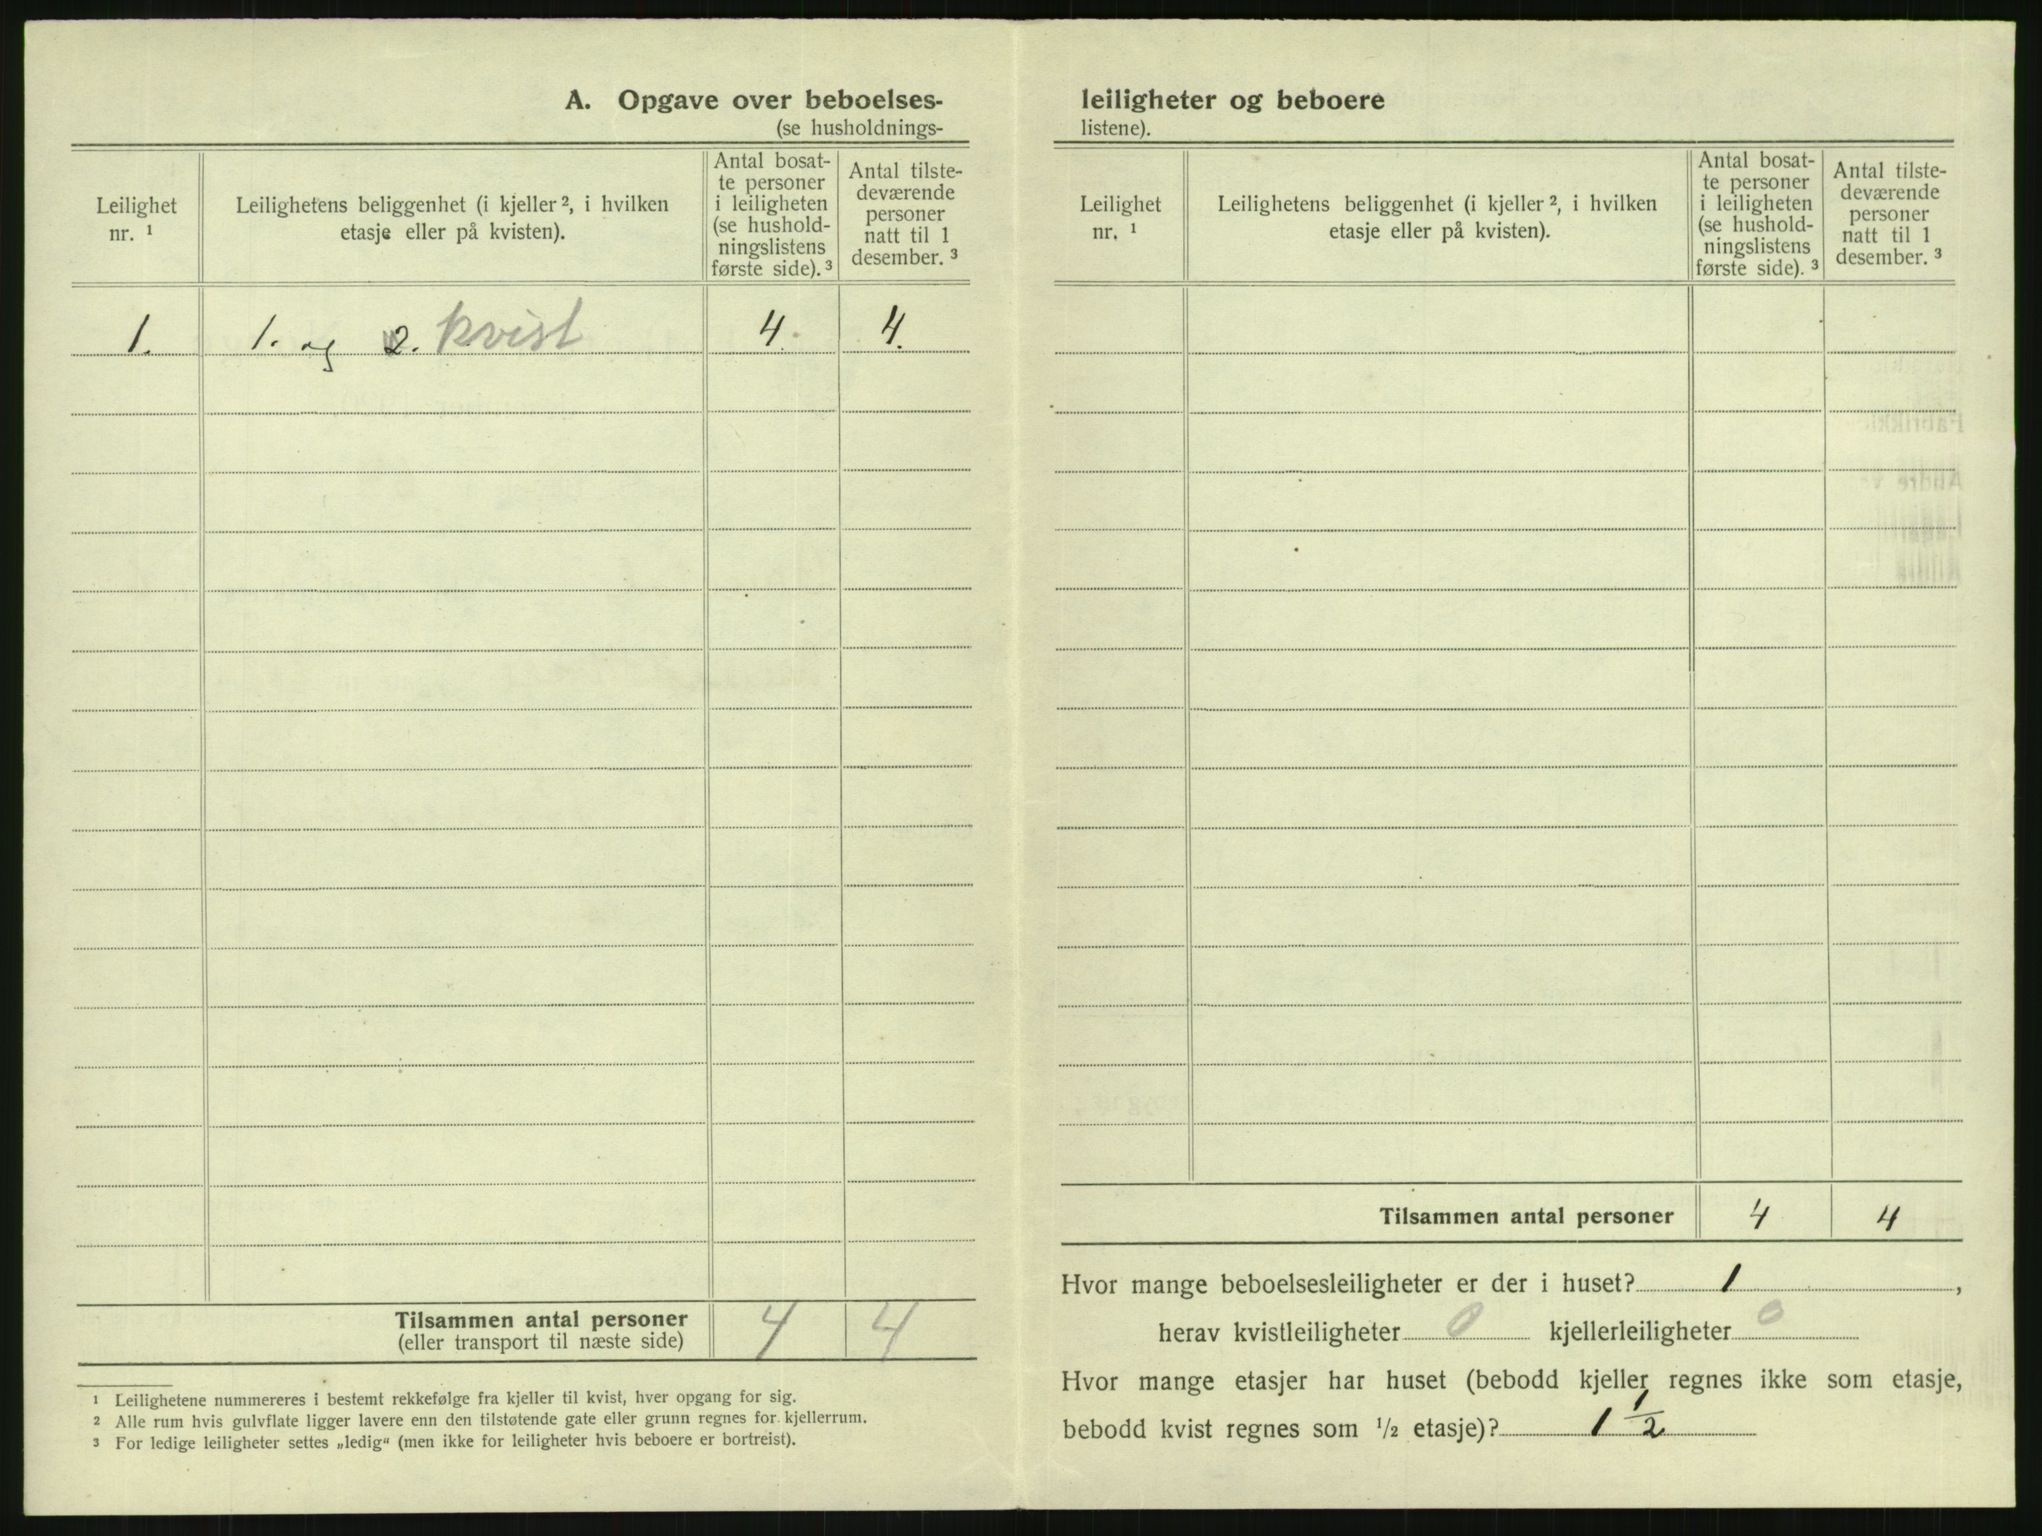 A. Opgave over beboelses-
(se husholdnings-
Leilighet
nr. ¹
Leilighetens beliggenhet (i kjeller ², i hvilken
etasje eller på kvisten).
Antal bosat-
te personer
i leiligheten
(se hushold-
ningslistens
første side). ³
Antal tilste-
deværende
personer
natt til 1
desember. ³
1. 1. og 2. kvist 4. 4.
Tilsammen antal personer 4 4
(eller transport til næste side)
¹ Leilighetene nummereres i bestemt rekkefølge fra kjeller til kvist, hver opgang for sig.
² Alle rum hvis gulvflate ligger lavere enn den tilstøtende gate eller grunn regnes for kjellerrum.
³ For ledige leiligheter settes „ledig“ (men ikke for leiligheter hvis beboere er bortreist).
leiligheter og beboere
listene).
Leilighet
nr. ¹
Leilighetens beliggenhet (i kjeller ², i hvilken
etasje eller på kvisten).
Antal bosat-
te personer
i leiligheten
(se hushold-
ningslistens
første side). ³
Antal tilste-
deværende
personer
natt til 1
desember. ³
Tilsammen antal personer 4 4
Hvor mange beboelsesleiligheter er der i huset? 1,
herav kvistleiligheter 0 kjellerleiligheter 0
Hvor mange etasjer har huset (bebodd kjeller regnes ikke som etasje,
bebodd kvist regnes som ½ etasje)? 1 ½